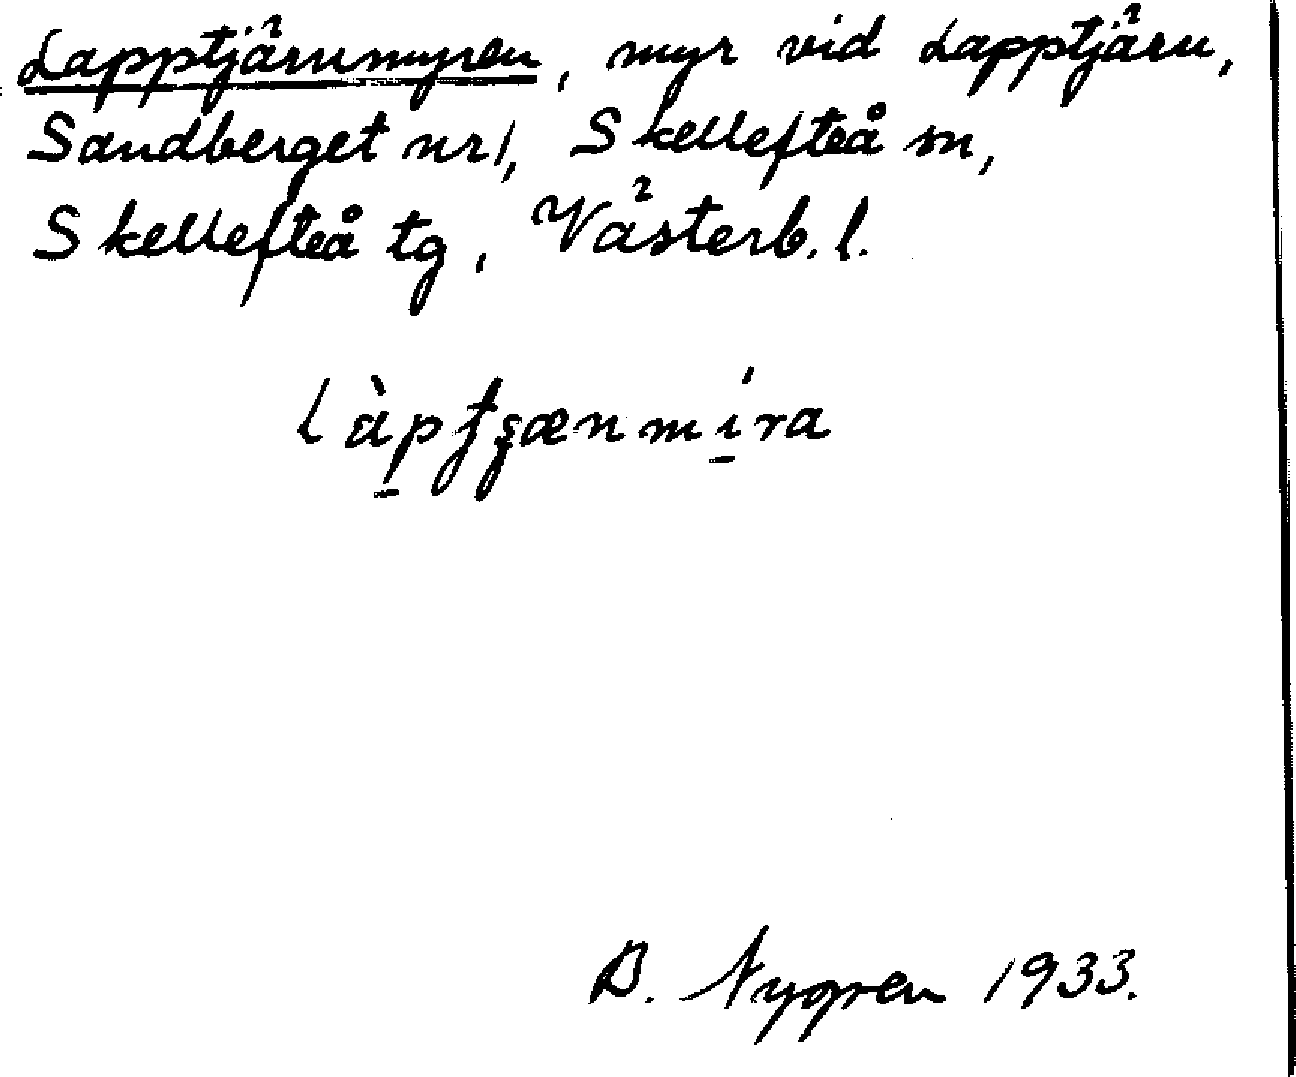 Lapptjärnmyren, myr vid Lapptjärn,
Sandberget nr 1, Skellefteå sn,
Skellefteå tg, Västerb. l.
B. Nygren 1933.